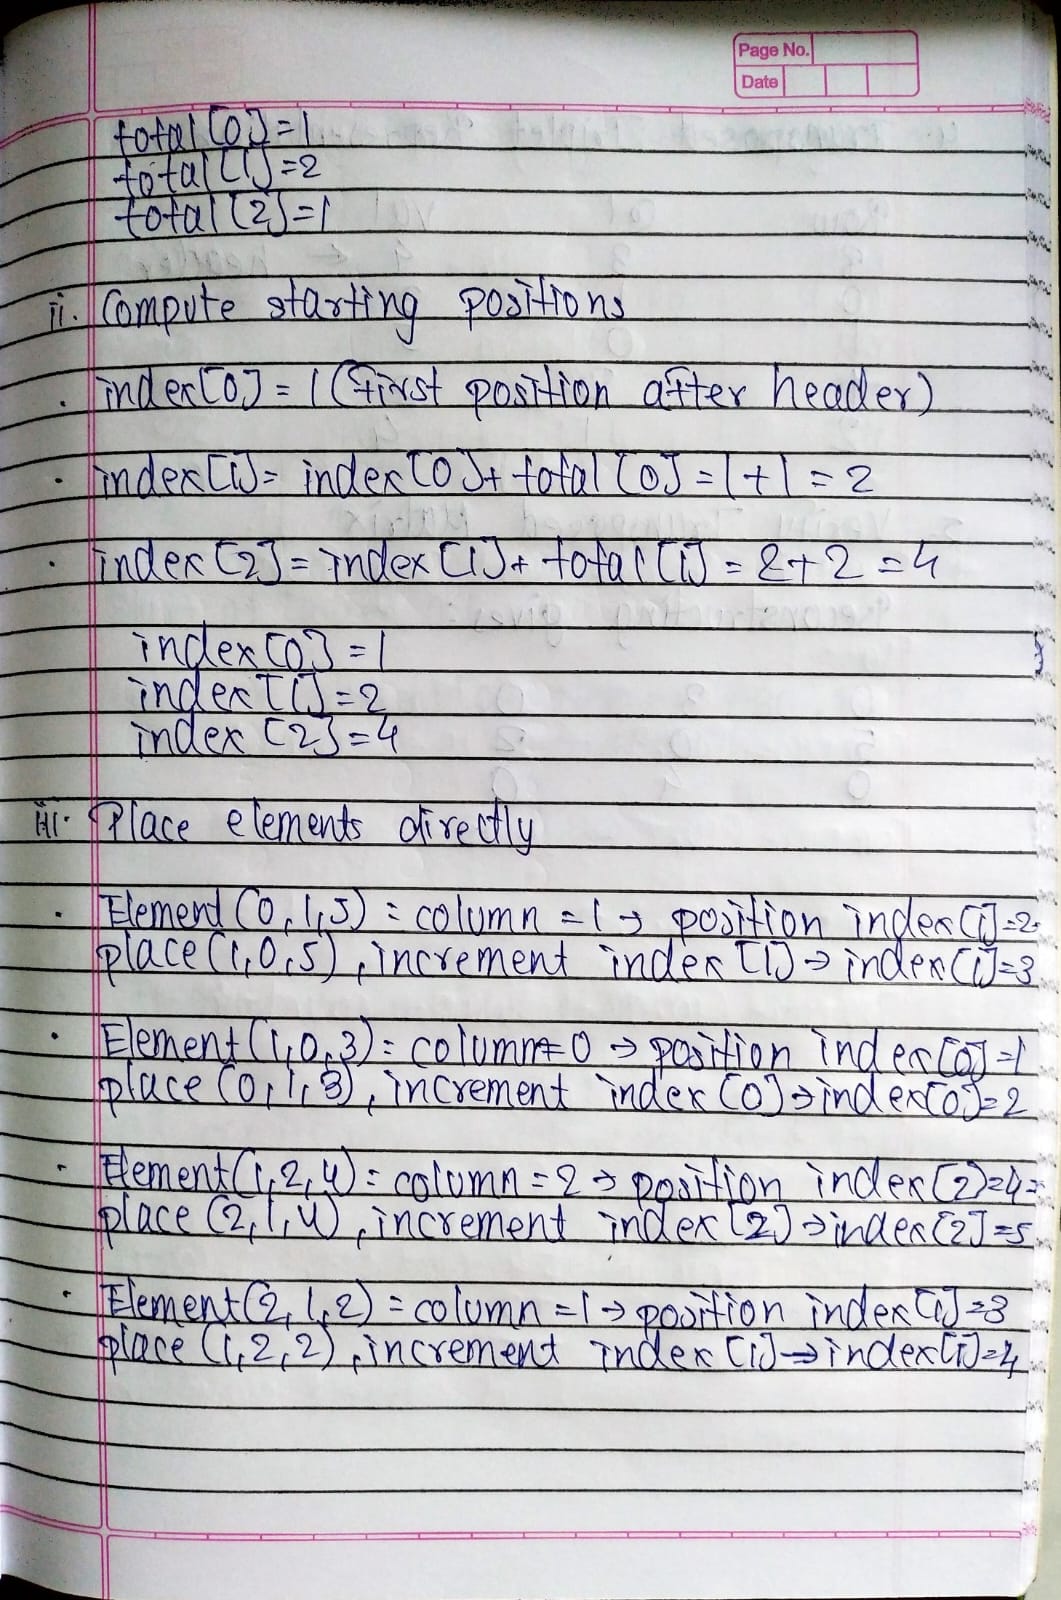 Page No.
Date
total[0]=1
total[1]=2
total[2]=1
ii. Compute starting positions
. index[0] = 1 (first position after header)
. index[1]= index[0]+ total[0] = 1+1 = 2
. index[2]= index[1]+ total[1] = 2+2 = 4
index[0] = 1
index[1]=2
index[2]=4
iii. Place elements directly
. Element(0,1,5) = column = 1 → position index[1]=2
place(1,0,5), increment index[1] → index[1]=3
. Element(1,0,3) = column=0 → position index[0]=1
place(0,1,3), increment index[0]→index[0]=2
. Element(1,2,4) = column = 2 → position index[2]=4
place(2,1,4), increment index[2]→index[2]=5
. Element(2,1,2) = column = 1 → position index[1]=3
place(1,2,2), increment index[1]→index[1]=4